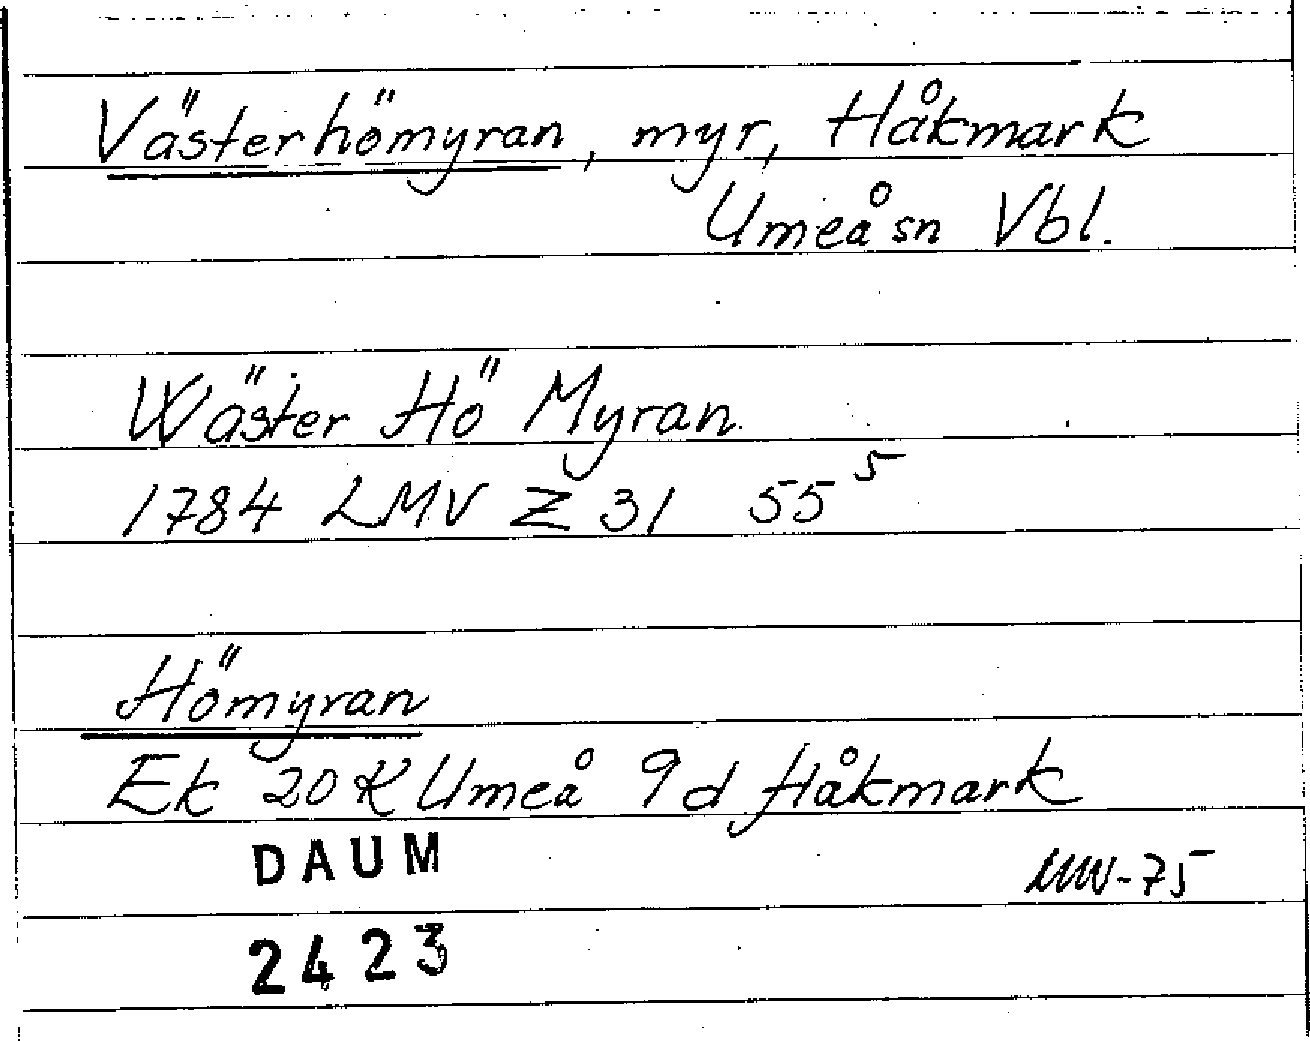 Västerhömyran, myr, Håkmark
Umeå sn Vbl.
Wäster Hö Myran
1784 LMV Z 31 55⁵
Hömyran
Ek 20K Umeå 9d Håkmark
DAUM
MW-75
2423